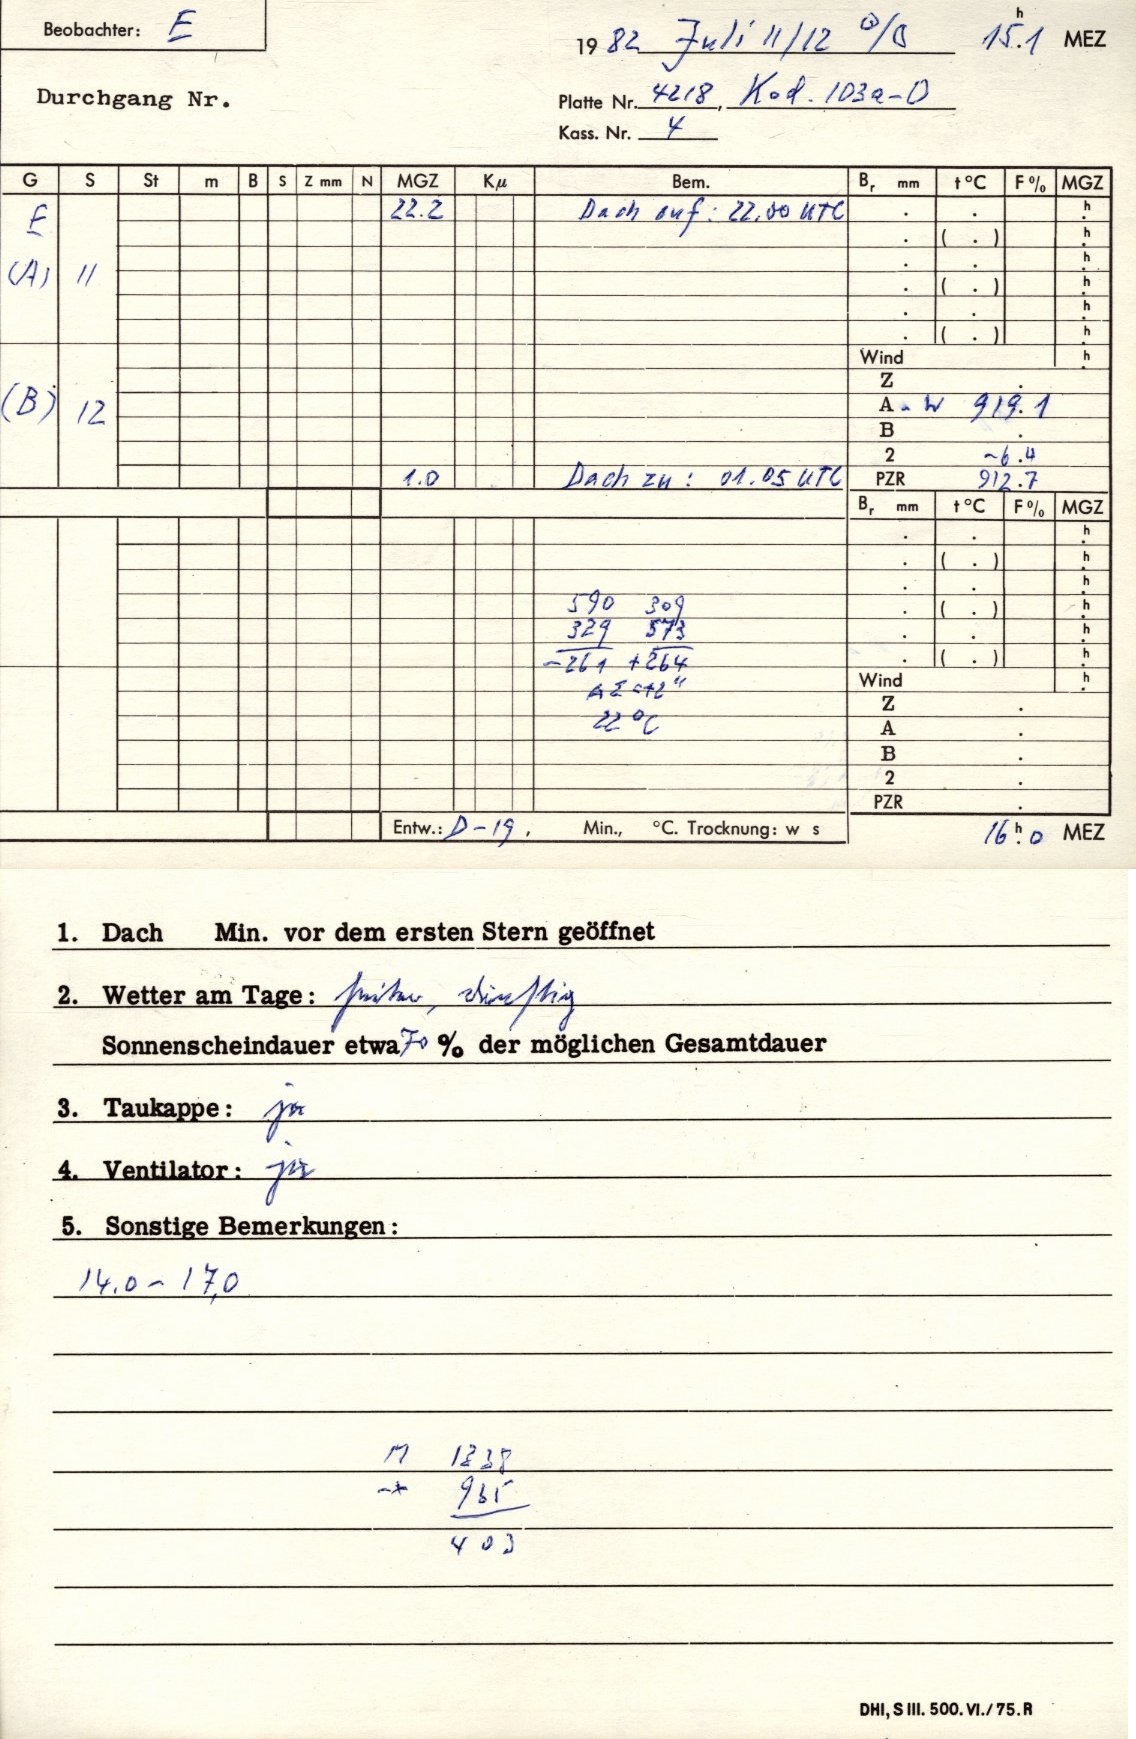 Beobachter: E
1982 Juli 11/12 15h.1 MEZ
Durchgang Nr.
Platte Nr. 4218, Kod. 103a-O
Kass. Nr. 4
G S St m B S Z mm N MGZ Kμ Bem. Br mm t °C F % MGZ
E 22.2 Dach auf: 22.00 UTC . . h
. ( . ) h
(A) 11 . . h
. ( . ) h
. . h
. ( . ) h
Wind h
Z .
(B) 12 A - W 919.1
B .
2 -6.4
1.0 Dach zu: 01.05 UTC PZR 912.7
Br mm t °C F % MGZ
. . h
. ( . ) h
. . h
590 309 . ( . ) h
329 573 . . h
-261 +264 . ( . ) h
Wind h
22 °C Z .
A .
B .
2 .
PZR .
Entw.: D-19, Min., °C. Trocknung: w s 16h.0 MEZ
1. Dach Min. vor dem ersten Stern geöffnet
2. Wetter am Tage: heiter, dunstig
Sonnenscheindauer etwa 70 % der möglichen Gesamtdauer
3. Taukappe: ja
4. Ventilator: ja
5. Sonstige Bemerkungen:
14.0 - 17,0
M 1338
-* 935
403
DHI, S III. 500. VI./75. R